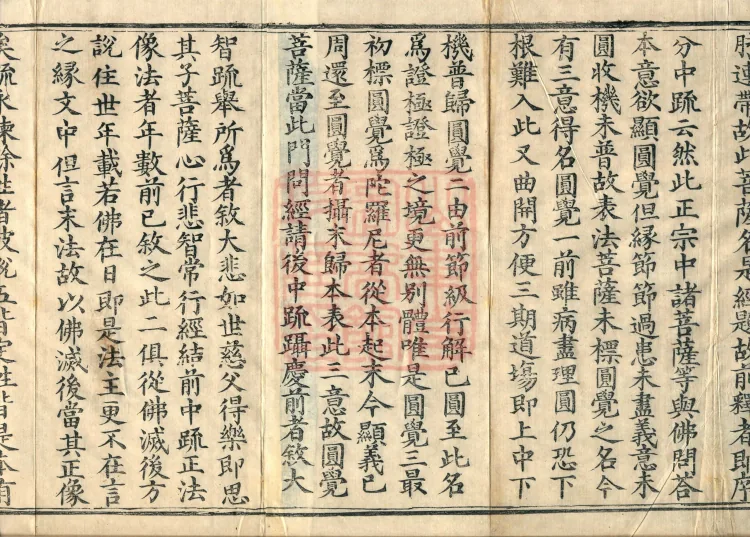 連帶故此菩薩名是經題故前釋者即序
分中疏云然此正宗中諸菩薩等與佛問荅
本意欲顯圓覺但緣節節過患未盡義意未
圓收機未普故表法菩薩未標圓覺之名今
有三意得名圓覺一前雖病盡理圓仍恐下
根難入此又曲開方便三期道場即上中下
機普歸圓覺二由前節級行解已圓至此名
爲證極證極之境更無別體唯是圓覺三最
初標圓覺爲陀羅尼者從本起末今顯義已
周還至圓覺者攝末歸本表此三意故圓覺
菩薩當此門問經請後中疏躡慶前者敘大
智疏舉所爲者敘大悲如世慈父得樂即思
其子菩薩心行悲智常行經結前中疏正法
像法者年數前已敘之此二俱從佛滅後方
說住世年載若佛在日即是法王更不在言
之緣文中但言末法故以佛滅後當其正像